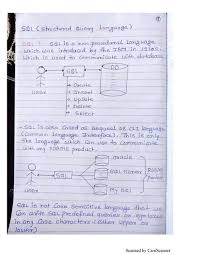 SQL (Structured Query Language)
SQL : SQL is a non procedural language
which was introduced by the IBM in 1970's
which is used to communicate with database
SQL
DB
user
→ Create
→ Insert
→ Update
→ Delete
→ Select
- SQL is also called as Sequel or CLI language
(Common Language Interface). This is only
the language which can use to communicate
with any RDBMS product.
oracle
SQL
SQL Server
user
My SQL
- SQL is not Case Sensitive language that we
can write SQL Predefined queries or syntaxes
in any Case characters (Either upper or
lower)
Scanned by CamScanner